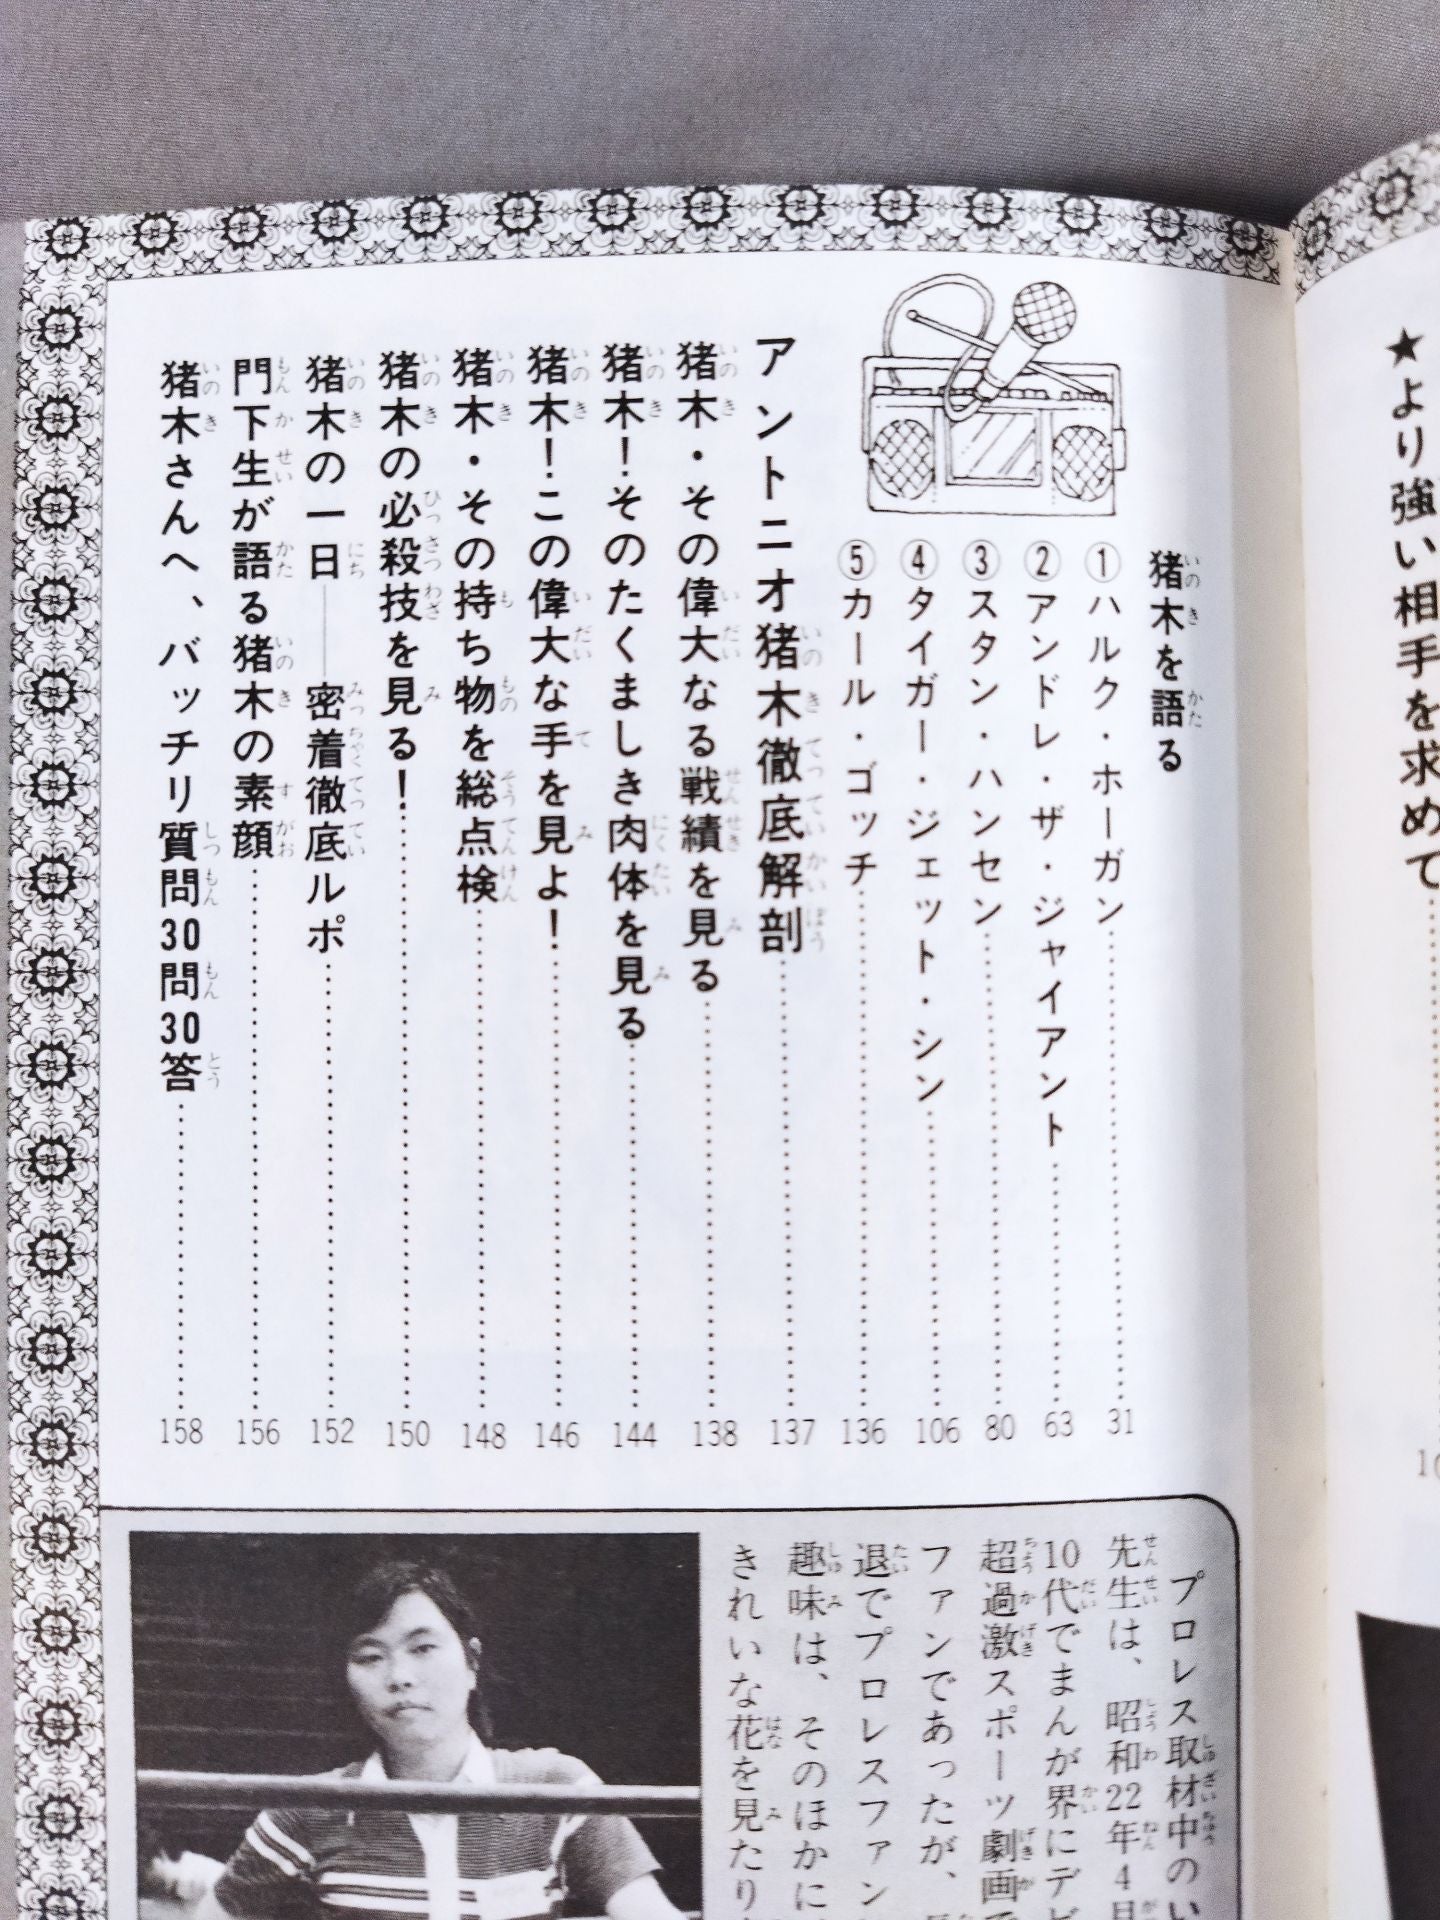 ★より強い相手を求めて
10
猪木を語る
①ハルク・ホーガン……31
②アンドレ・ザ・ジャイアント……63
③スタン・ハンセン……80
④タイガー・ジェット・シン……106
⑤カール・ゴッチ……136
アントニオ猪木徹底解剖……137
猪木・その偉大なる戦績を見る……138
猪木！そのたくましき肉体を見る……144
猪木！この偉大な手を見よ！……146
猪木・その持ち物を総点検……148
猪木の必殺技を見る！……150
猪木の一日――密着徹底ルポ……152
門下生が語る猪木の素顔……156
猪木さんへ、バッチリ質問30問30答……158
プロレス取材中のい
先生は、昭和22年4月
10代でまんが界にデビ
超過激スポーツ劇画で
ファンであったが、
退でプロレスファン
趣味は、そのほかに
きれいな花を見たり